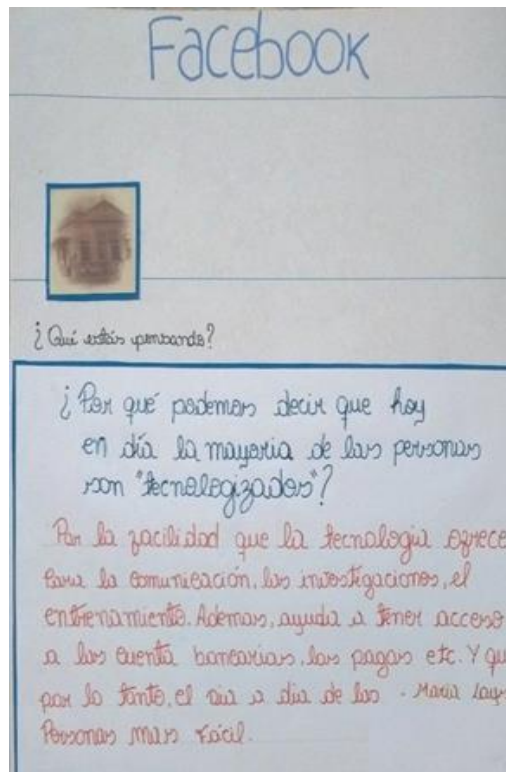 Facebook
¿Qué estás pensando?
¿Por qué podemos decir que hoy
en día la mayoria de las personas
son "tecnologizados"?
Por la facilidad que la tecnologia ofrece
Para la comunicación, las investigaciones, el
entrenamiento. Ademas, ayuda a tener acceso
a las cuenta bancarias, las pagas etc. Y que
por lo tanto, el dia a dia de las - Maria Lay
Personas mas fácil.